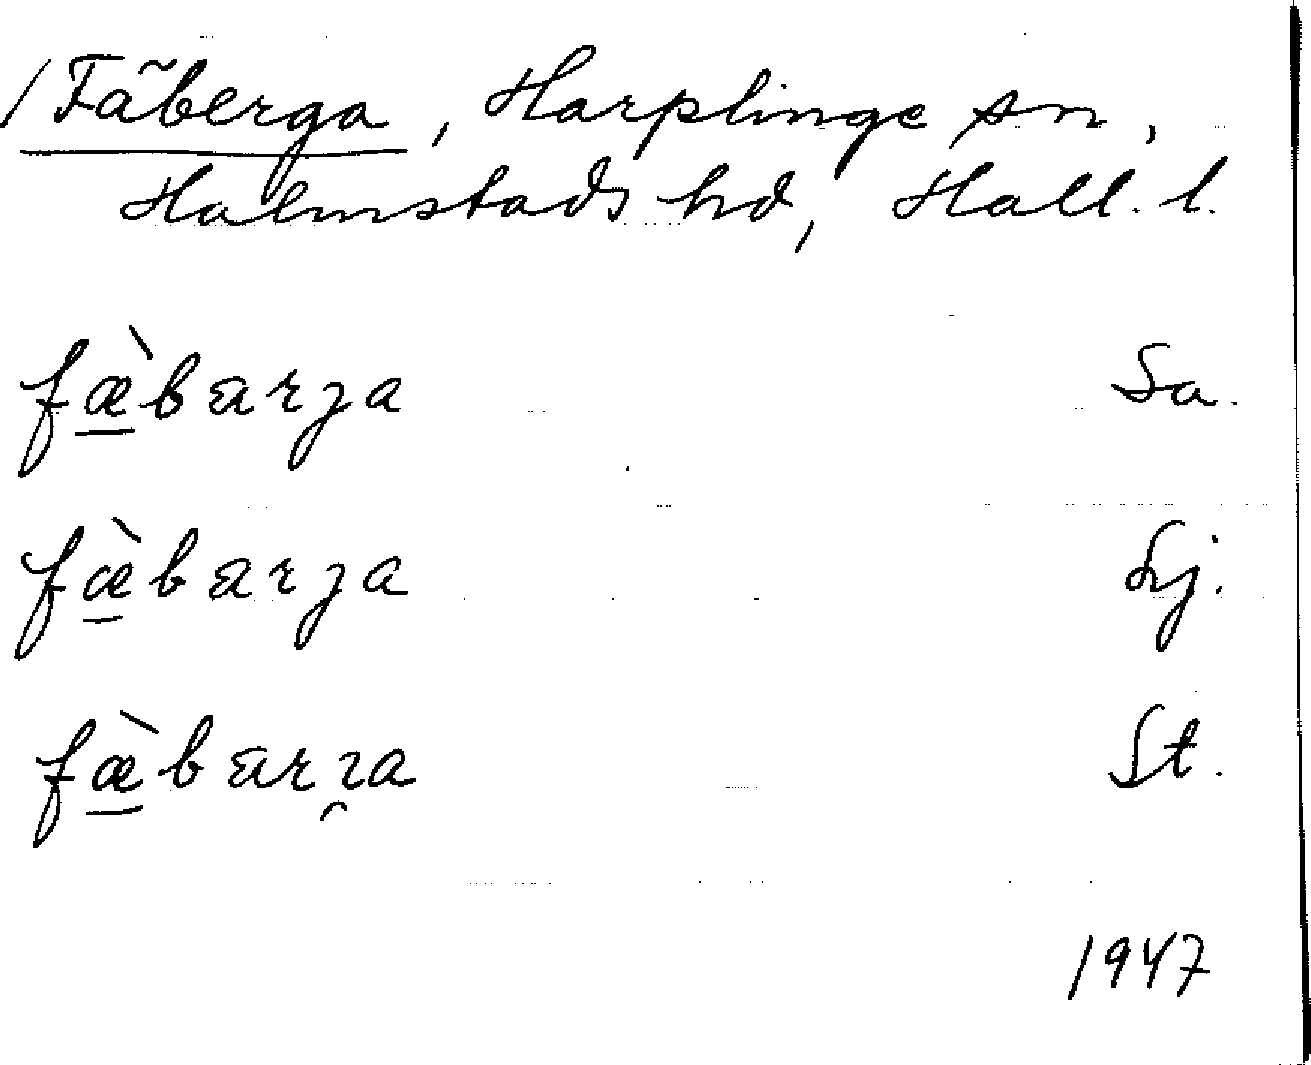 /Fäberga, Harplinge sn,
Halmstads hd, Hall. l.
fæ̱̀barȷa Sa.
fæ̱̀barȷa Lj.
fæ̱̀barı̯a St.
1947